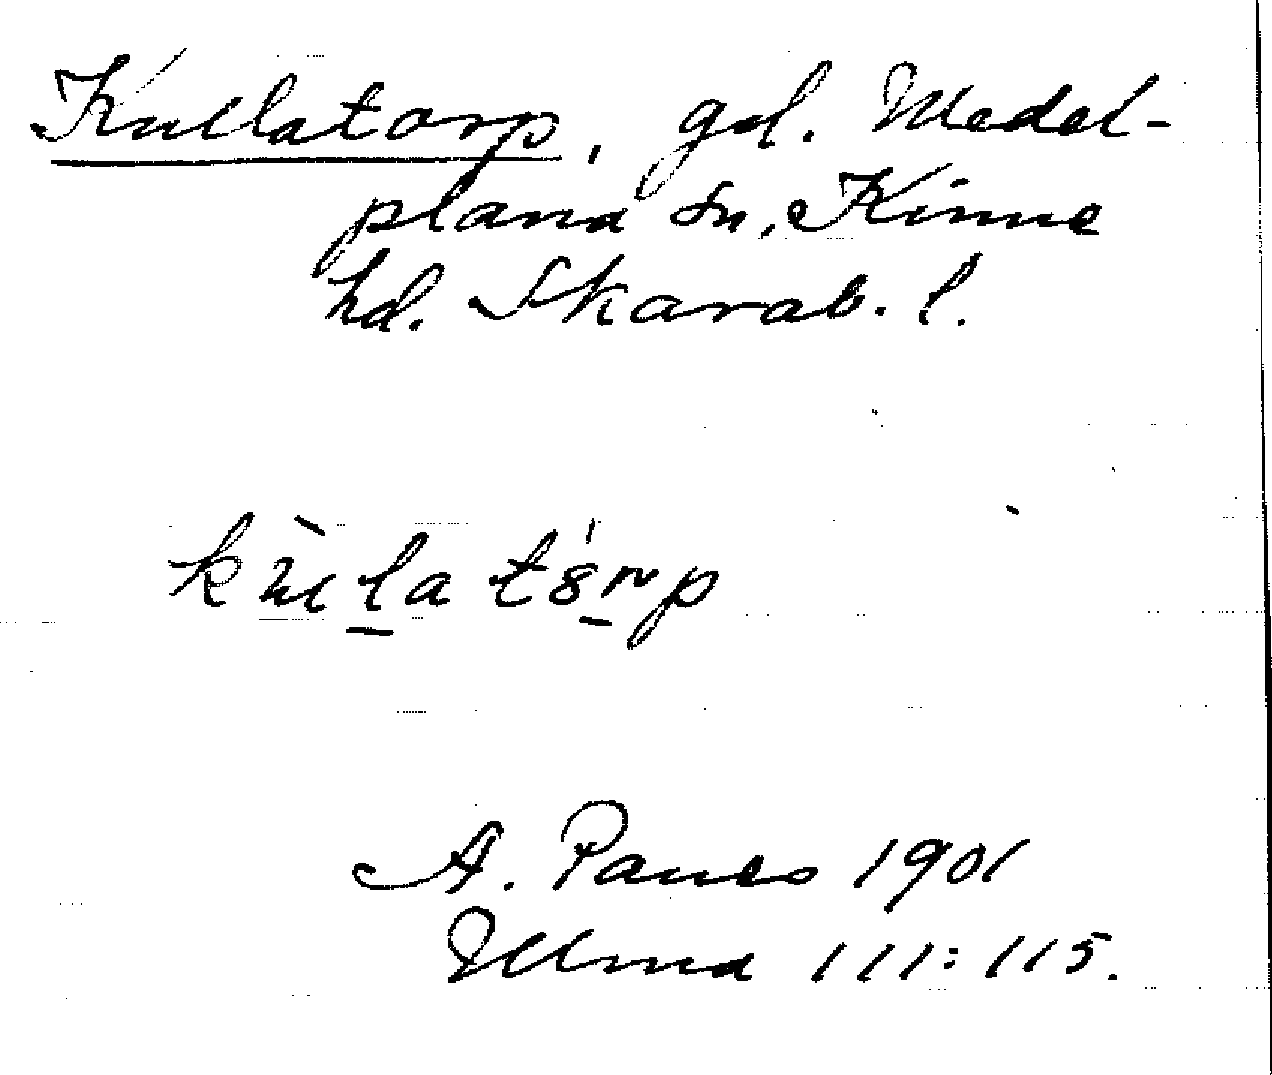 Kullatorp, gd. Medel-
plana sn, Kinne
hd. Skarab. l.
kùlatό̱rp
A. Paues 1901
Ulma 111:115.